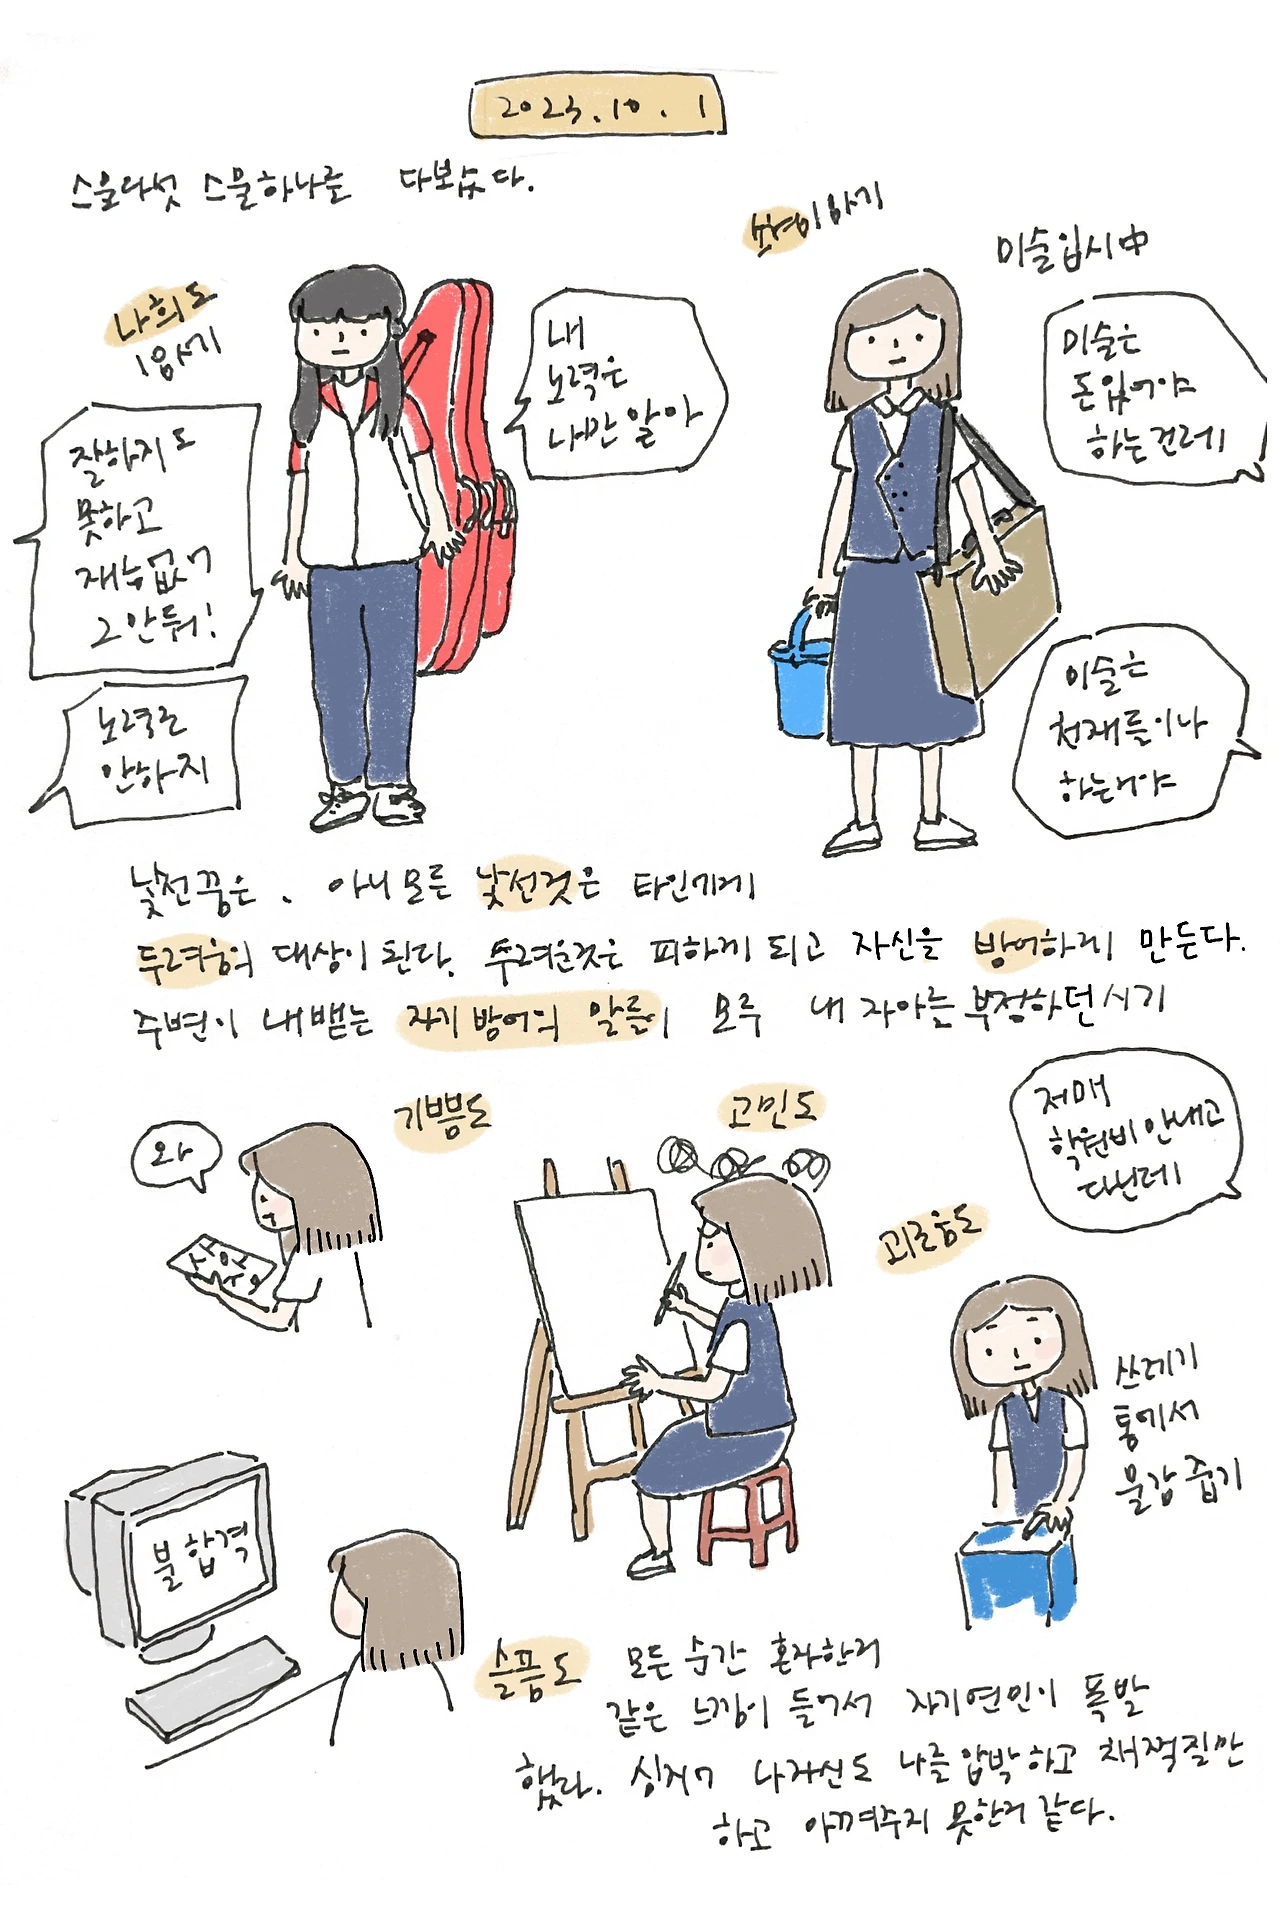 2023.10.1
스물다섯 스물하나를 다보았다.
나희도
18세기
잘하지도
못하고
재능없어
그만둬!
노력은
안하지
내
노력은
나만 알아
이야기
미술입시中
미술은
돈있어야
하는건데
미술은
천재들이나
하는거야
낯선꿈은. 아니 모든 낯선것은 타인에게
두려움의 대상이 된다. 두려운것은 피하게 되고 자신을 방어하게 만든다.
주변이 내뱉는 자기 방어의 말들이 모두 내 자아를 부정하던시기
기쁨도
와
상
고민도
괴로움도
저애
학원비 안내고
다닌데
쓰레기
통에서
물감 줍기
불합격
슬픔도 모든 순간 혼자한거
같은 느낌이 들어서 자기연민이 폭발
했다. 심지어 나자신도 나를 압박하고 채찍질만
하고 아껴주지 못한거 같다.